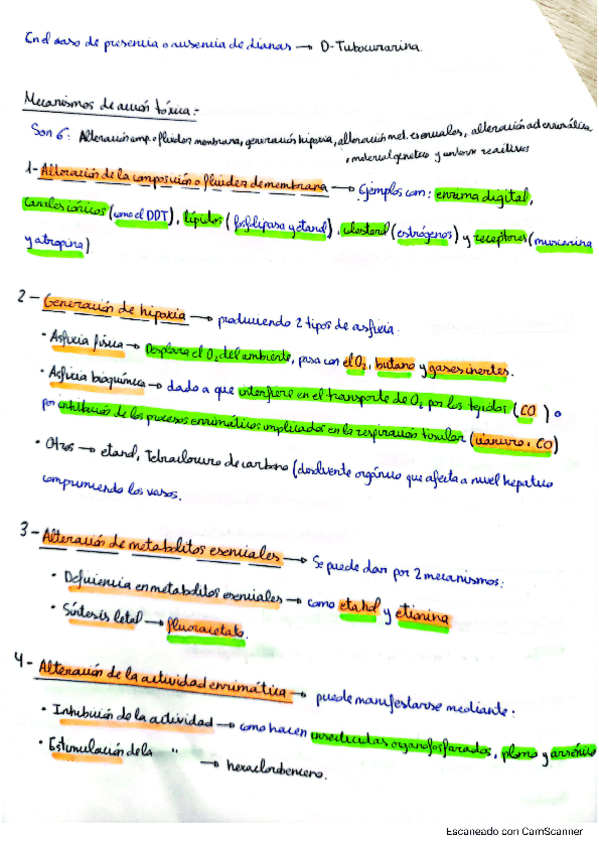 En el caso de presencia o ausencia de dianas → D-Tubocurarina.
Mecanismos de acción tóxica:-
Son 6: Alteración comp. o fluidez membrana, generación hipoxia, alteración met. esenciales, alteración act enzimática
, material genético y uniones reactivos
1- Alteración de la composición o fluidez de membrana → Ejemplos com: enzima digital,
canales iónicos (como el DDT), lípidos (fosfolipasa y etanol), colesterol (estrógenos) y receptores (muscarina
y atropina)
2- Generación de hipoxia → produciendo 2 tipos de asfixia:
· Asfixia física → Desplaza el O₂ del ambiente, pasa con el O₂, butano y gases inertes.
· Asfixia bioquímica → dado a que interfiere en el transporte de O₂ por los tejidos (CO) o
por inhibición de los procesos enzimáticos implicados en la respiración tisular (cianuro, CO)
· Otros → etanol, tetracloruro de carbono (disolvente orgánico que afecta a nivel hepático
comprimiendo los vasos.
3- Alteración de metabolitos esenciales → Se puede dar por 2 mecanismos:
· Deficiencia en metabolitos esenciales → como etanol y etionina
· Síntesis letal → fluoracetato.
4- Alteración de la actividad enzimática → puede manifestarse mediante:
· Inhibición de la actividad → como hacen insecticidas organofosforados, plomo y arsénico
· Estimulación de la " → hexaclorobenceno.
Escaneado con CamScanner